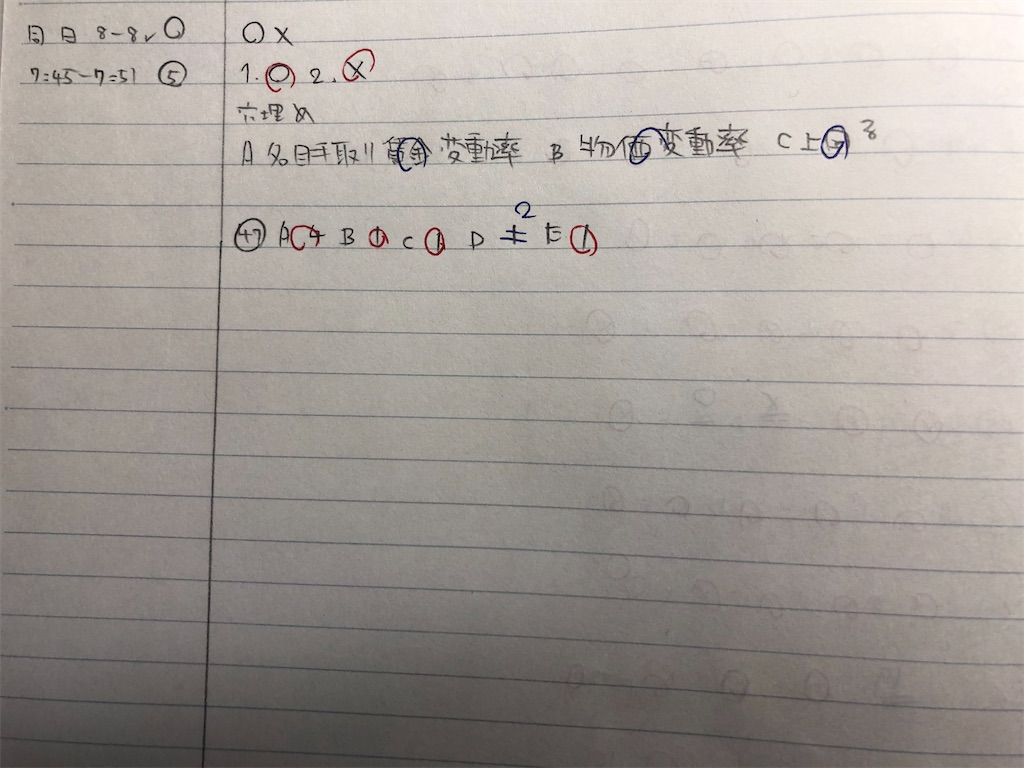 周 日 8-8✓ ○
7:45-7:51 ⑤
○×
1. ○ 2. ×
穴埋め
A 名目手取り賃金変動率 B 物価変動率 C 上回る
A 4 B 1 C 1 D ± 2 E 1